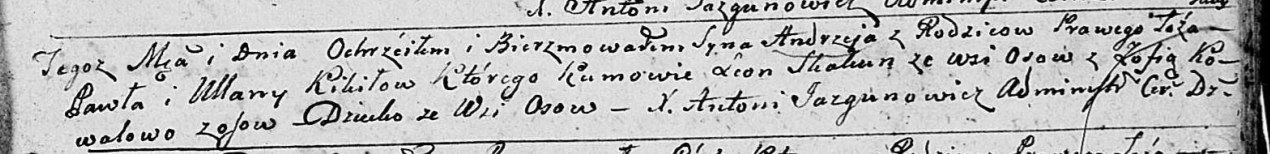 X. Antoni Jazgunowicz
Tegoż Mca i Dnia Ochrzciłem i Bierzmowałem Syna Andrzeja z Rodzicow Prawego Łoża
Pawła i Ullany Kikiłow Którego Kumowie Leon Skakun ze wsi Osow z Zofią Ko-
walowo z Osow – Dziecko ze Wsi Osow – X. Antoni Jazgunowicz Administr Cer. Dz-